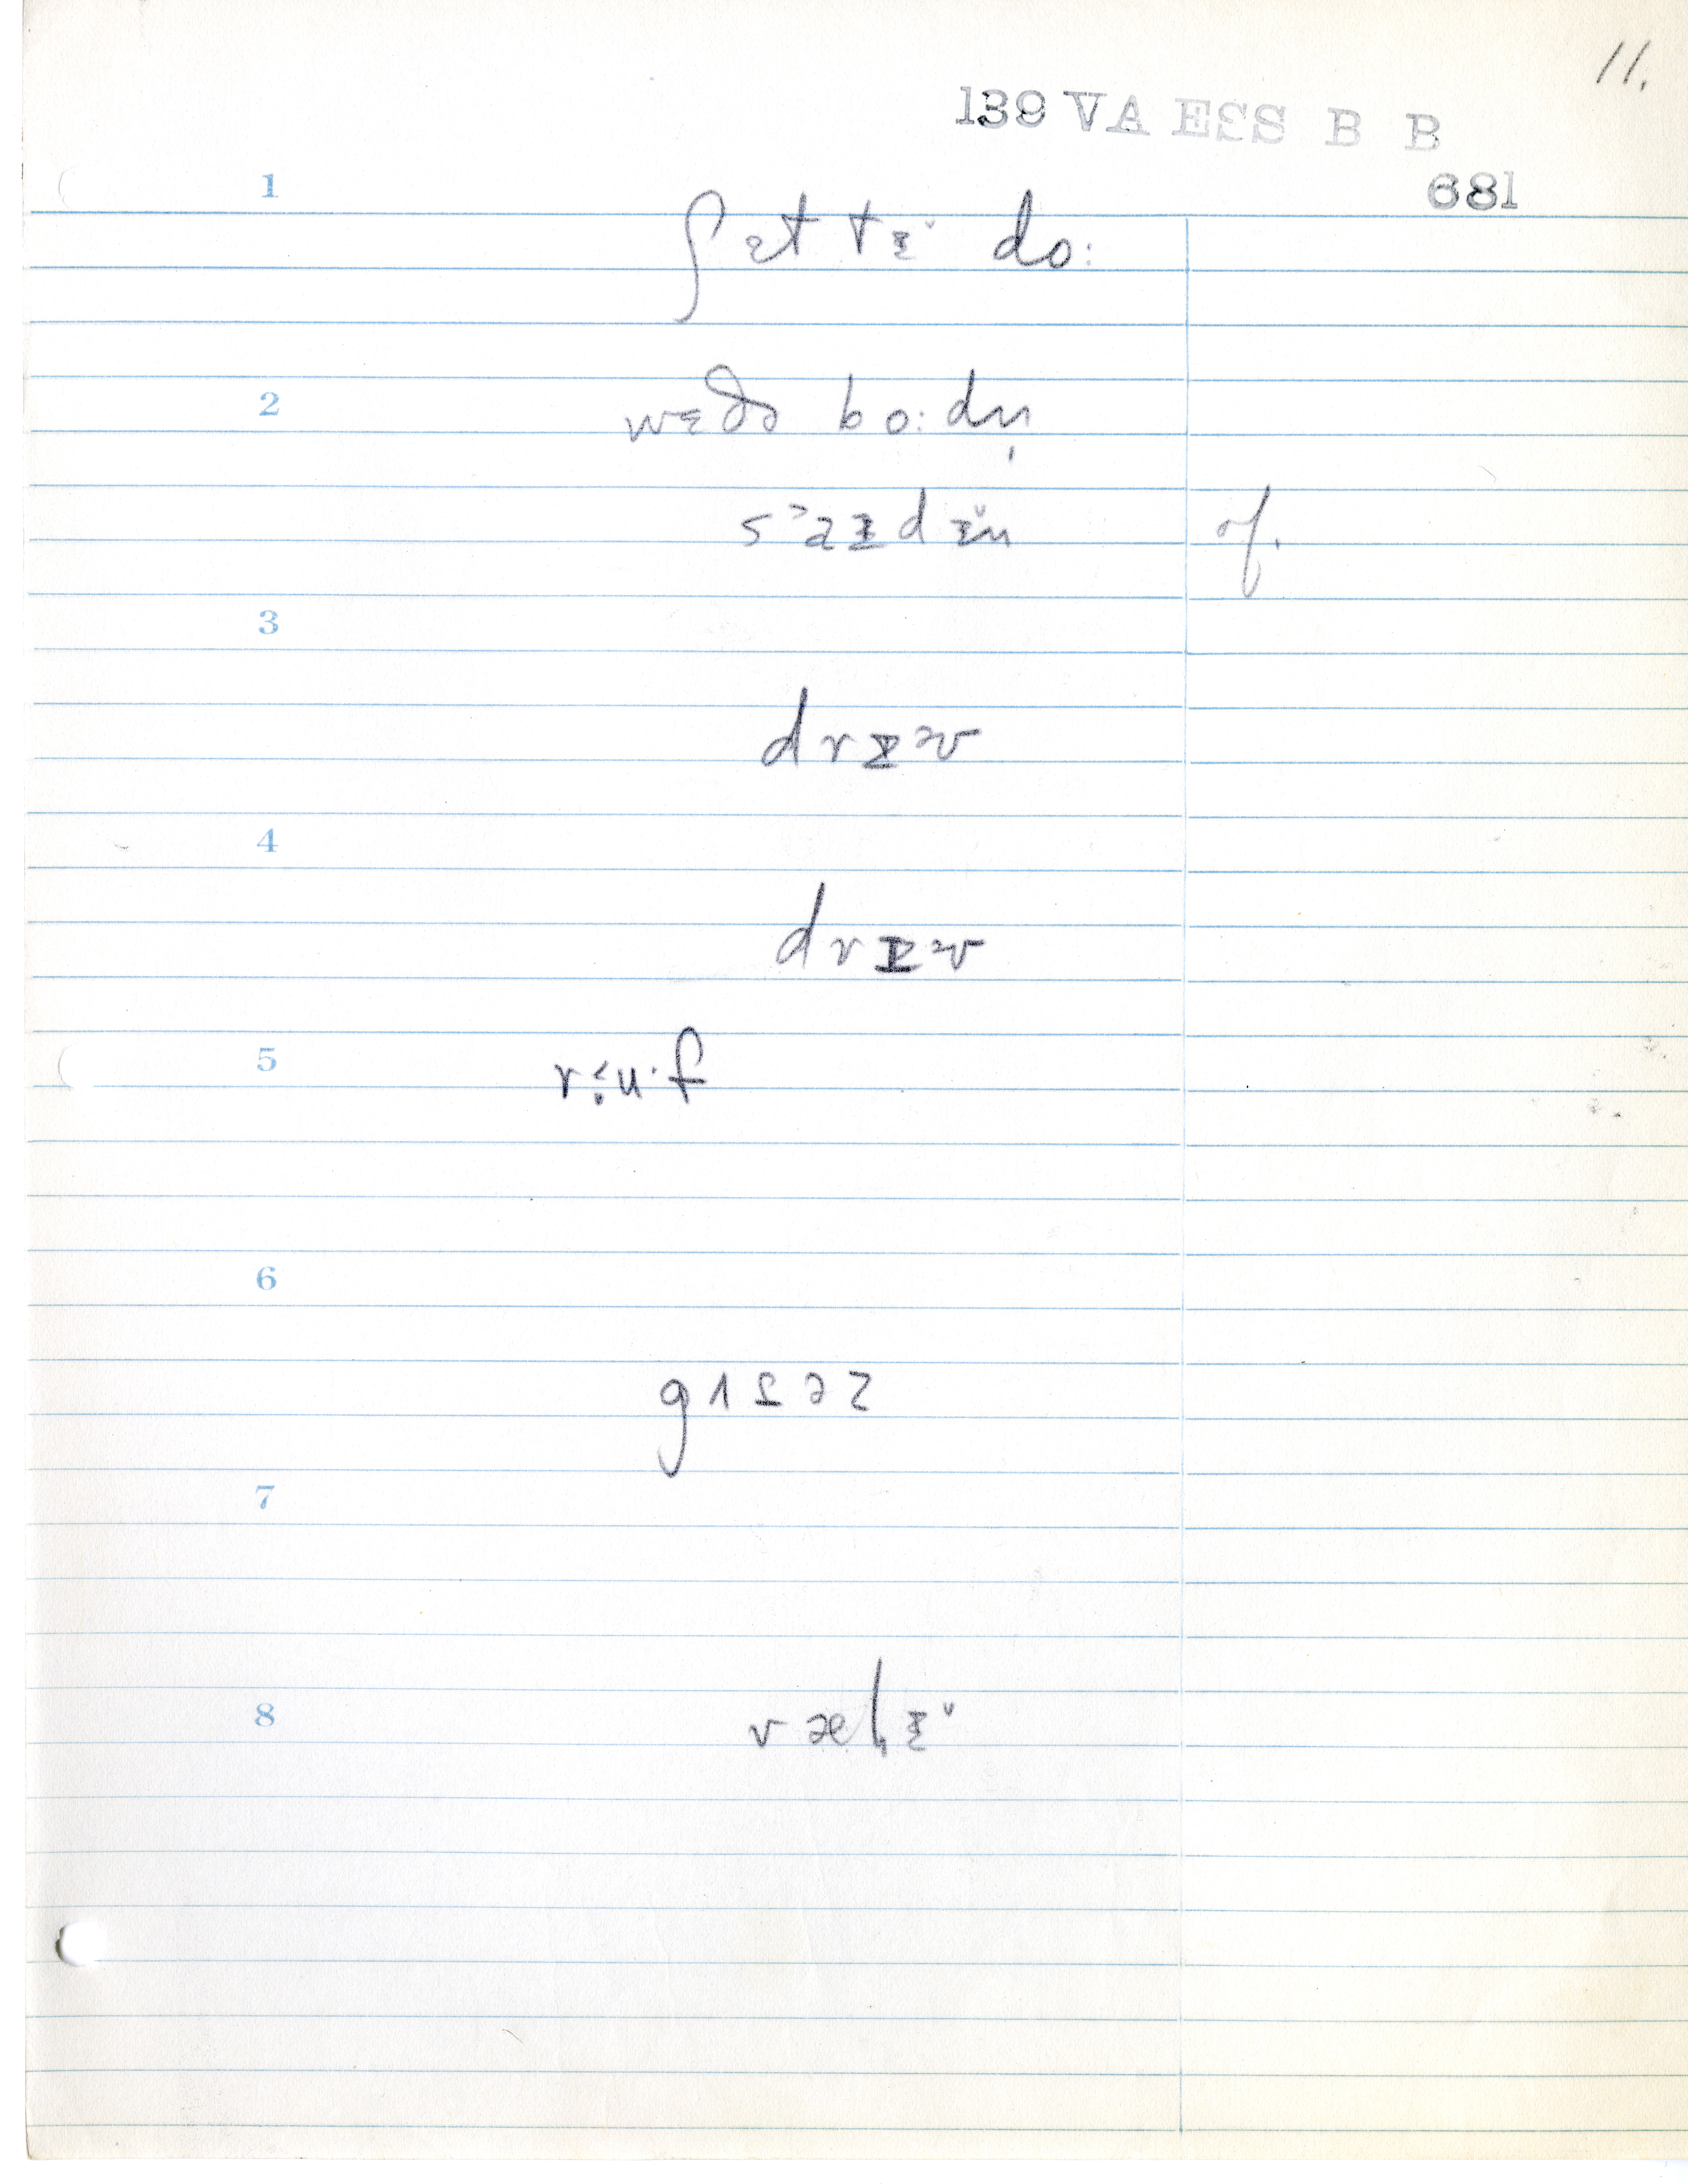 11.
139 VA ESS B B
681
1
ʃɛt tɪ̆ do:
2
wɛðə bo:dn̩
s˃aɪdɪ̆n of.
3
drɪəv
4
drɪəv
5
r˂u·f
6
gʌtəz
7
8
vælɪ̆